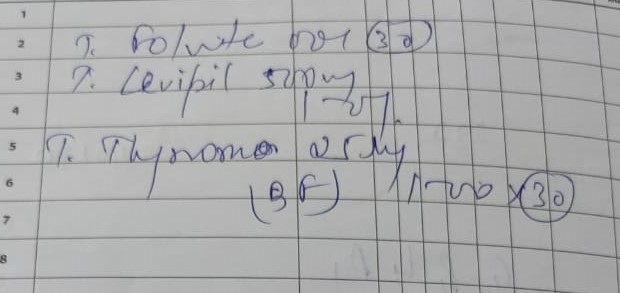 1
2 T. Folvite (30)
3 T. Levipil 500mg
4 1-0-1
5 T. Thynorm 25mcg
6 (BF) 1-0-0 x (30)
7
8